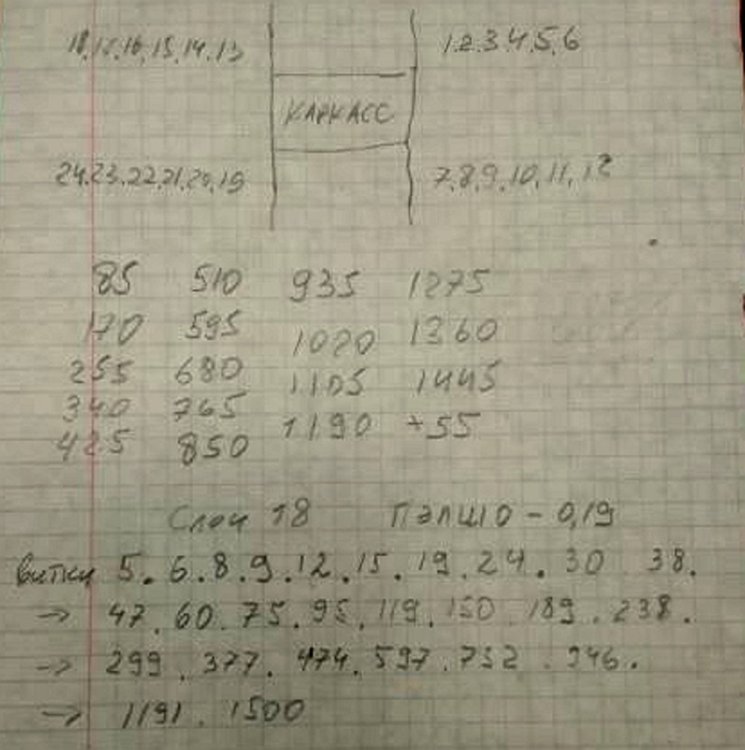 18,17,16,15,14,13 1.2.3.4,5,6
КАРКАСС
24.23.22,21,20,19 7,8,9,10,11,12
85 510 935 1275
170 595 1020 1360
255 680 1105 1445
340 765 1190 +55
425 850
Слой 18 ПЭЛШО - 0,19
витки 5.6.8.9.12.15.19.24.30 38.
→ 47.60.75.95.119.150.189.238.
→ 299.377.474.597.752.946.
→ 1191.1500